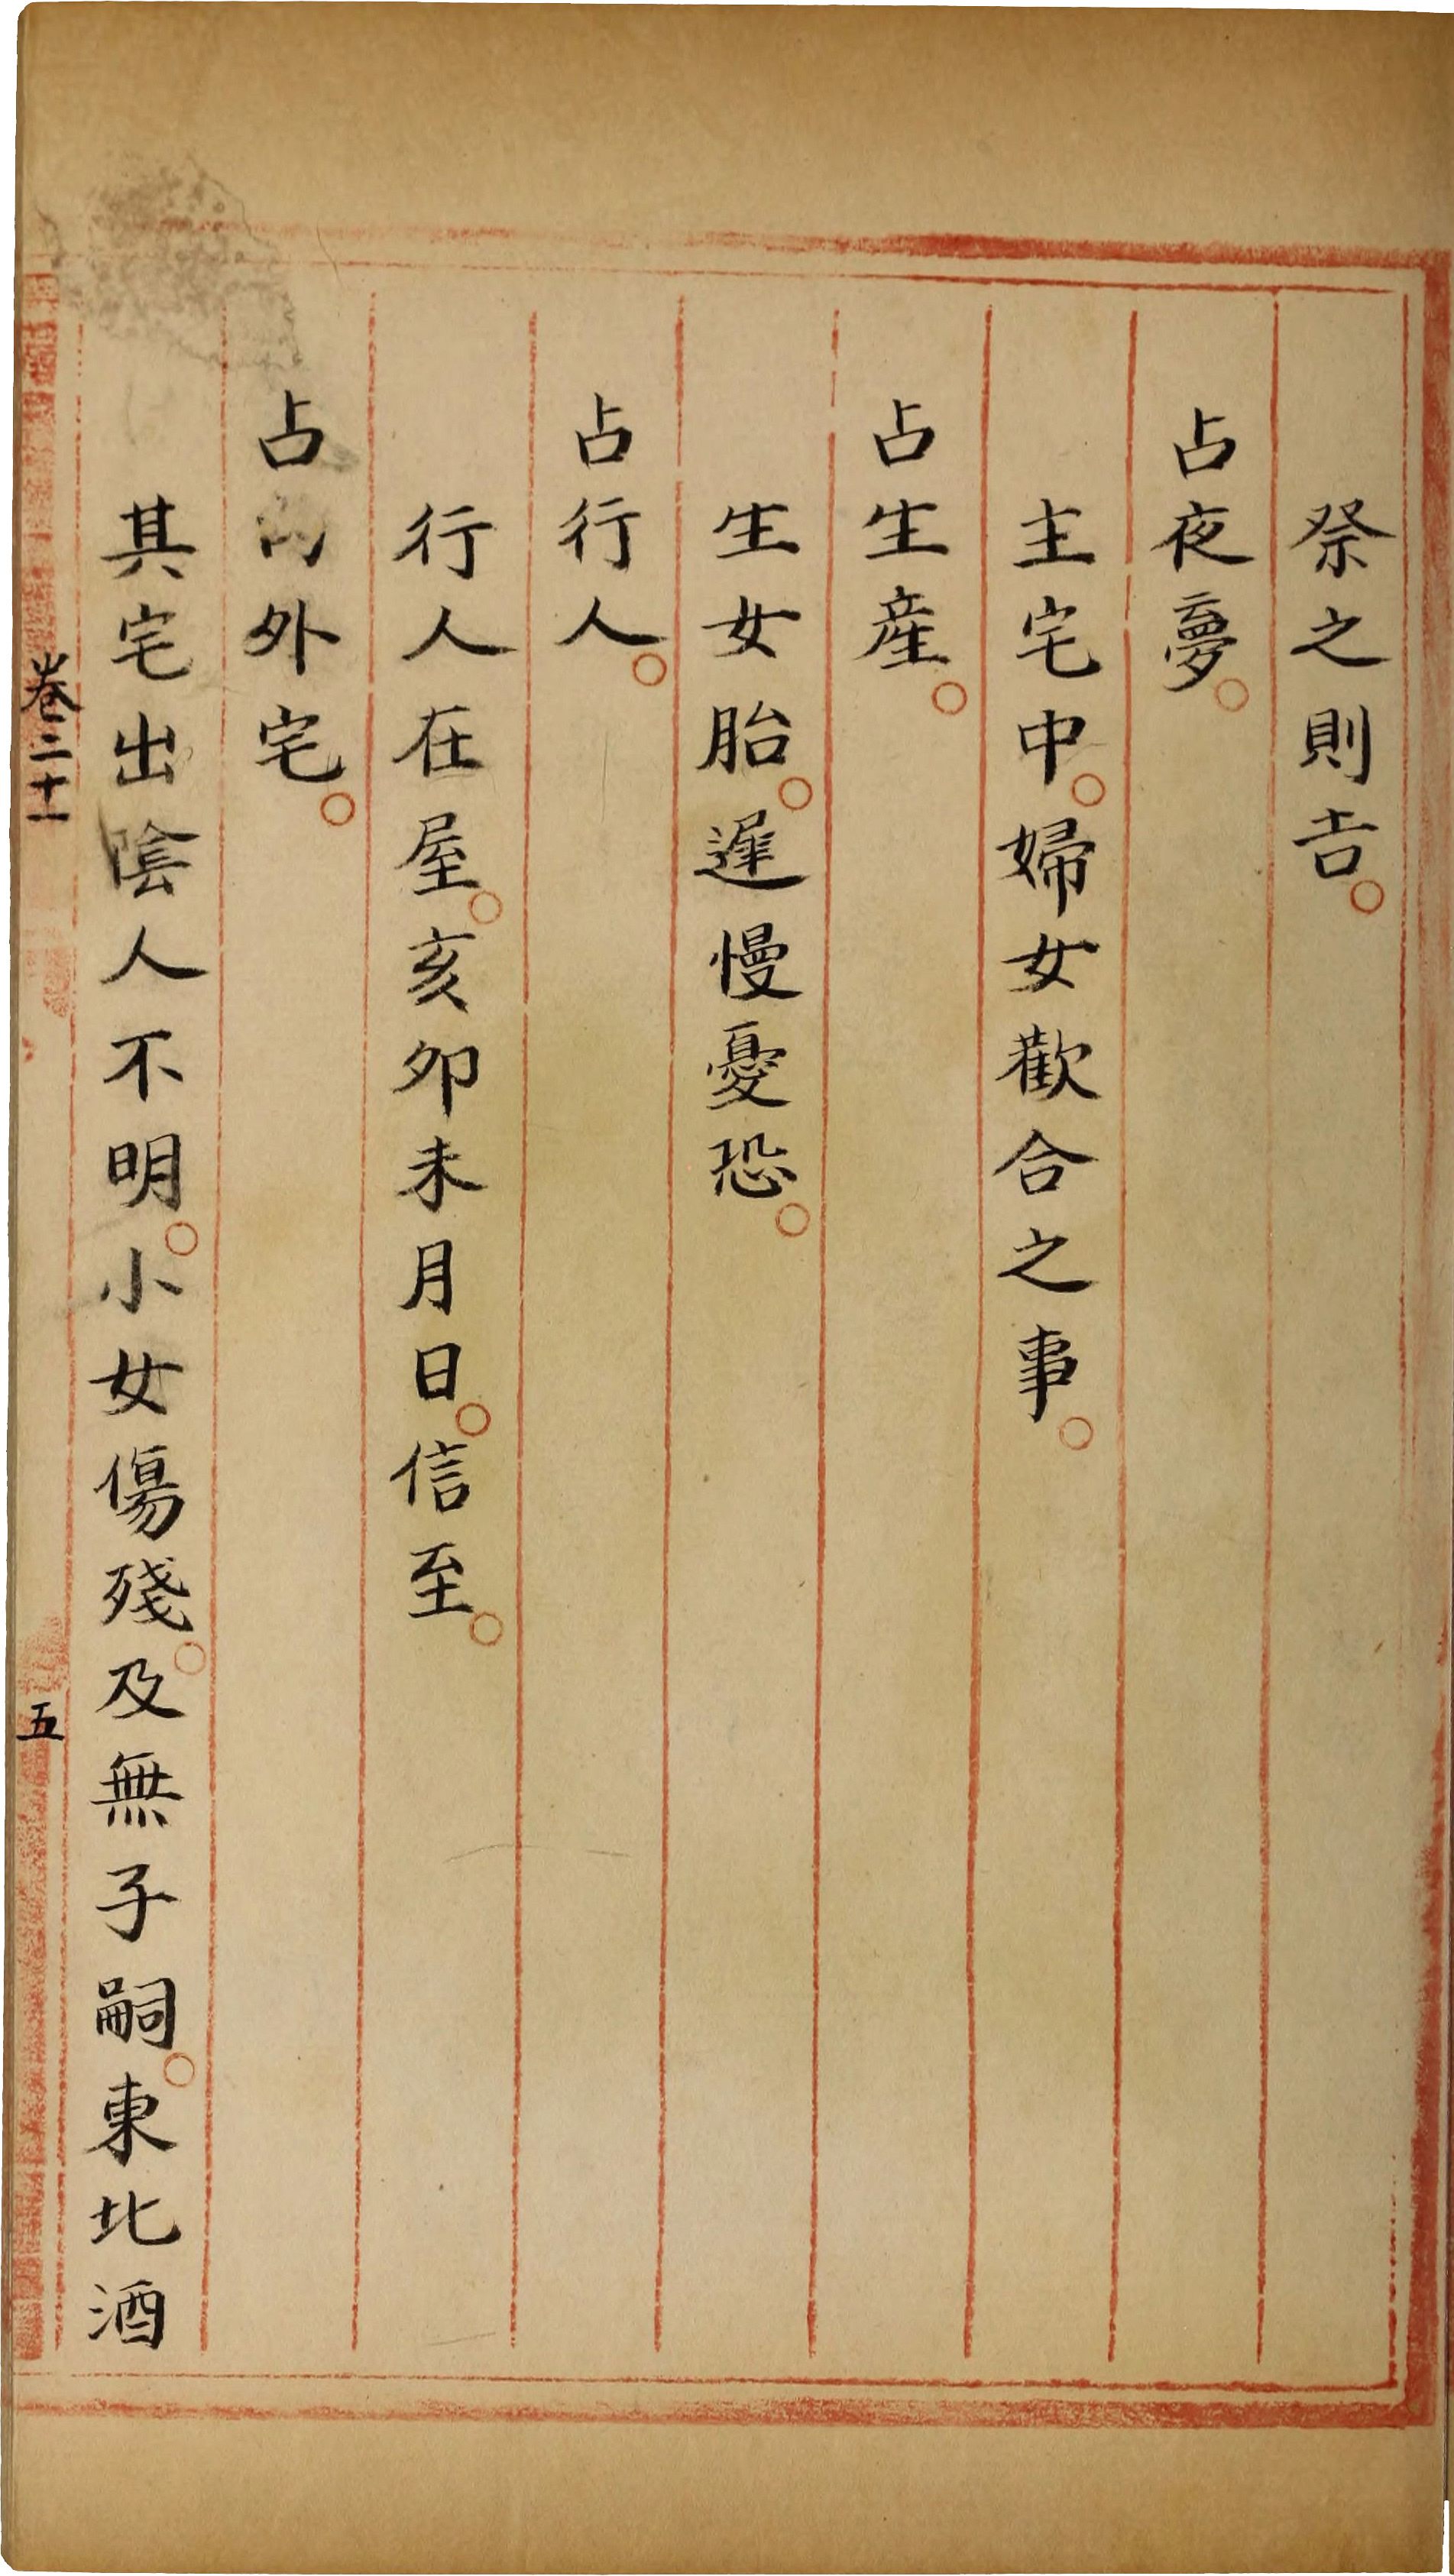 祭之則吉。
占夜夢。
主宅中。婦女歡合之事。
占生産。
生女胎。遲慢憂恐。
占行人。
行人在屋。亥卯未月日。信至。
占外宅。
其宅出陰人不明。小女傷殘。及無子嗣。東北酒
卷二十一
五